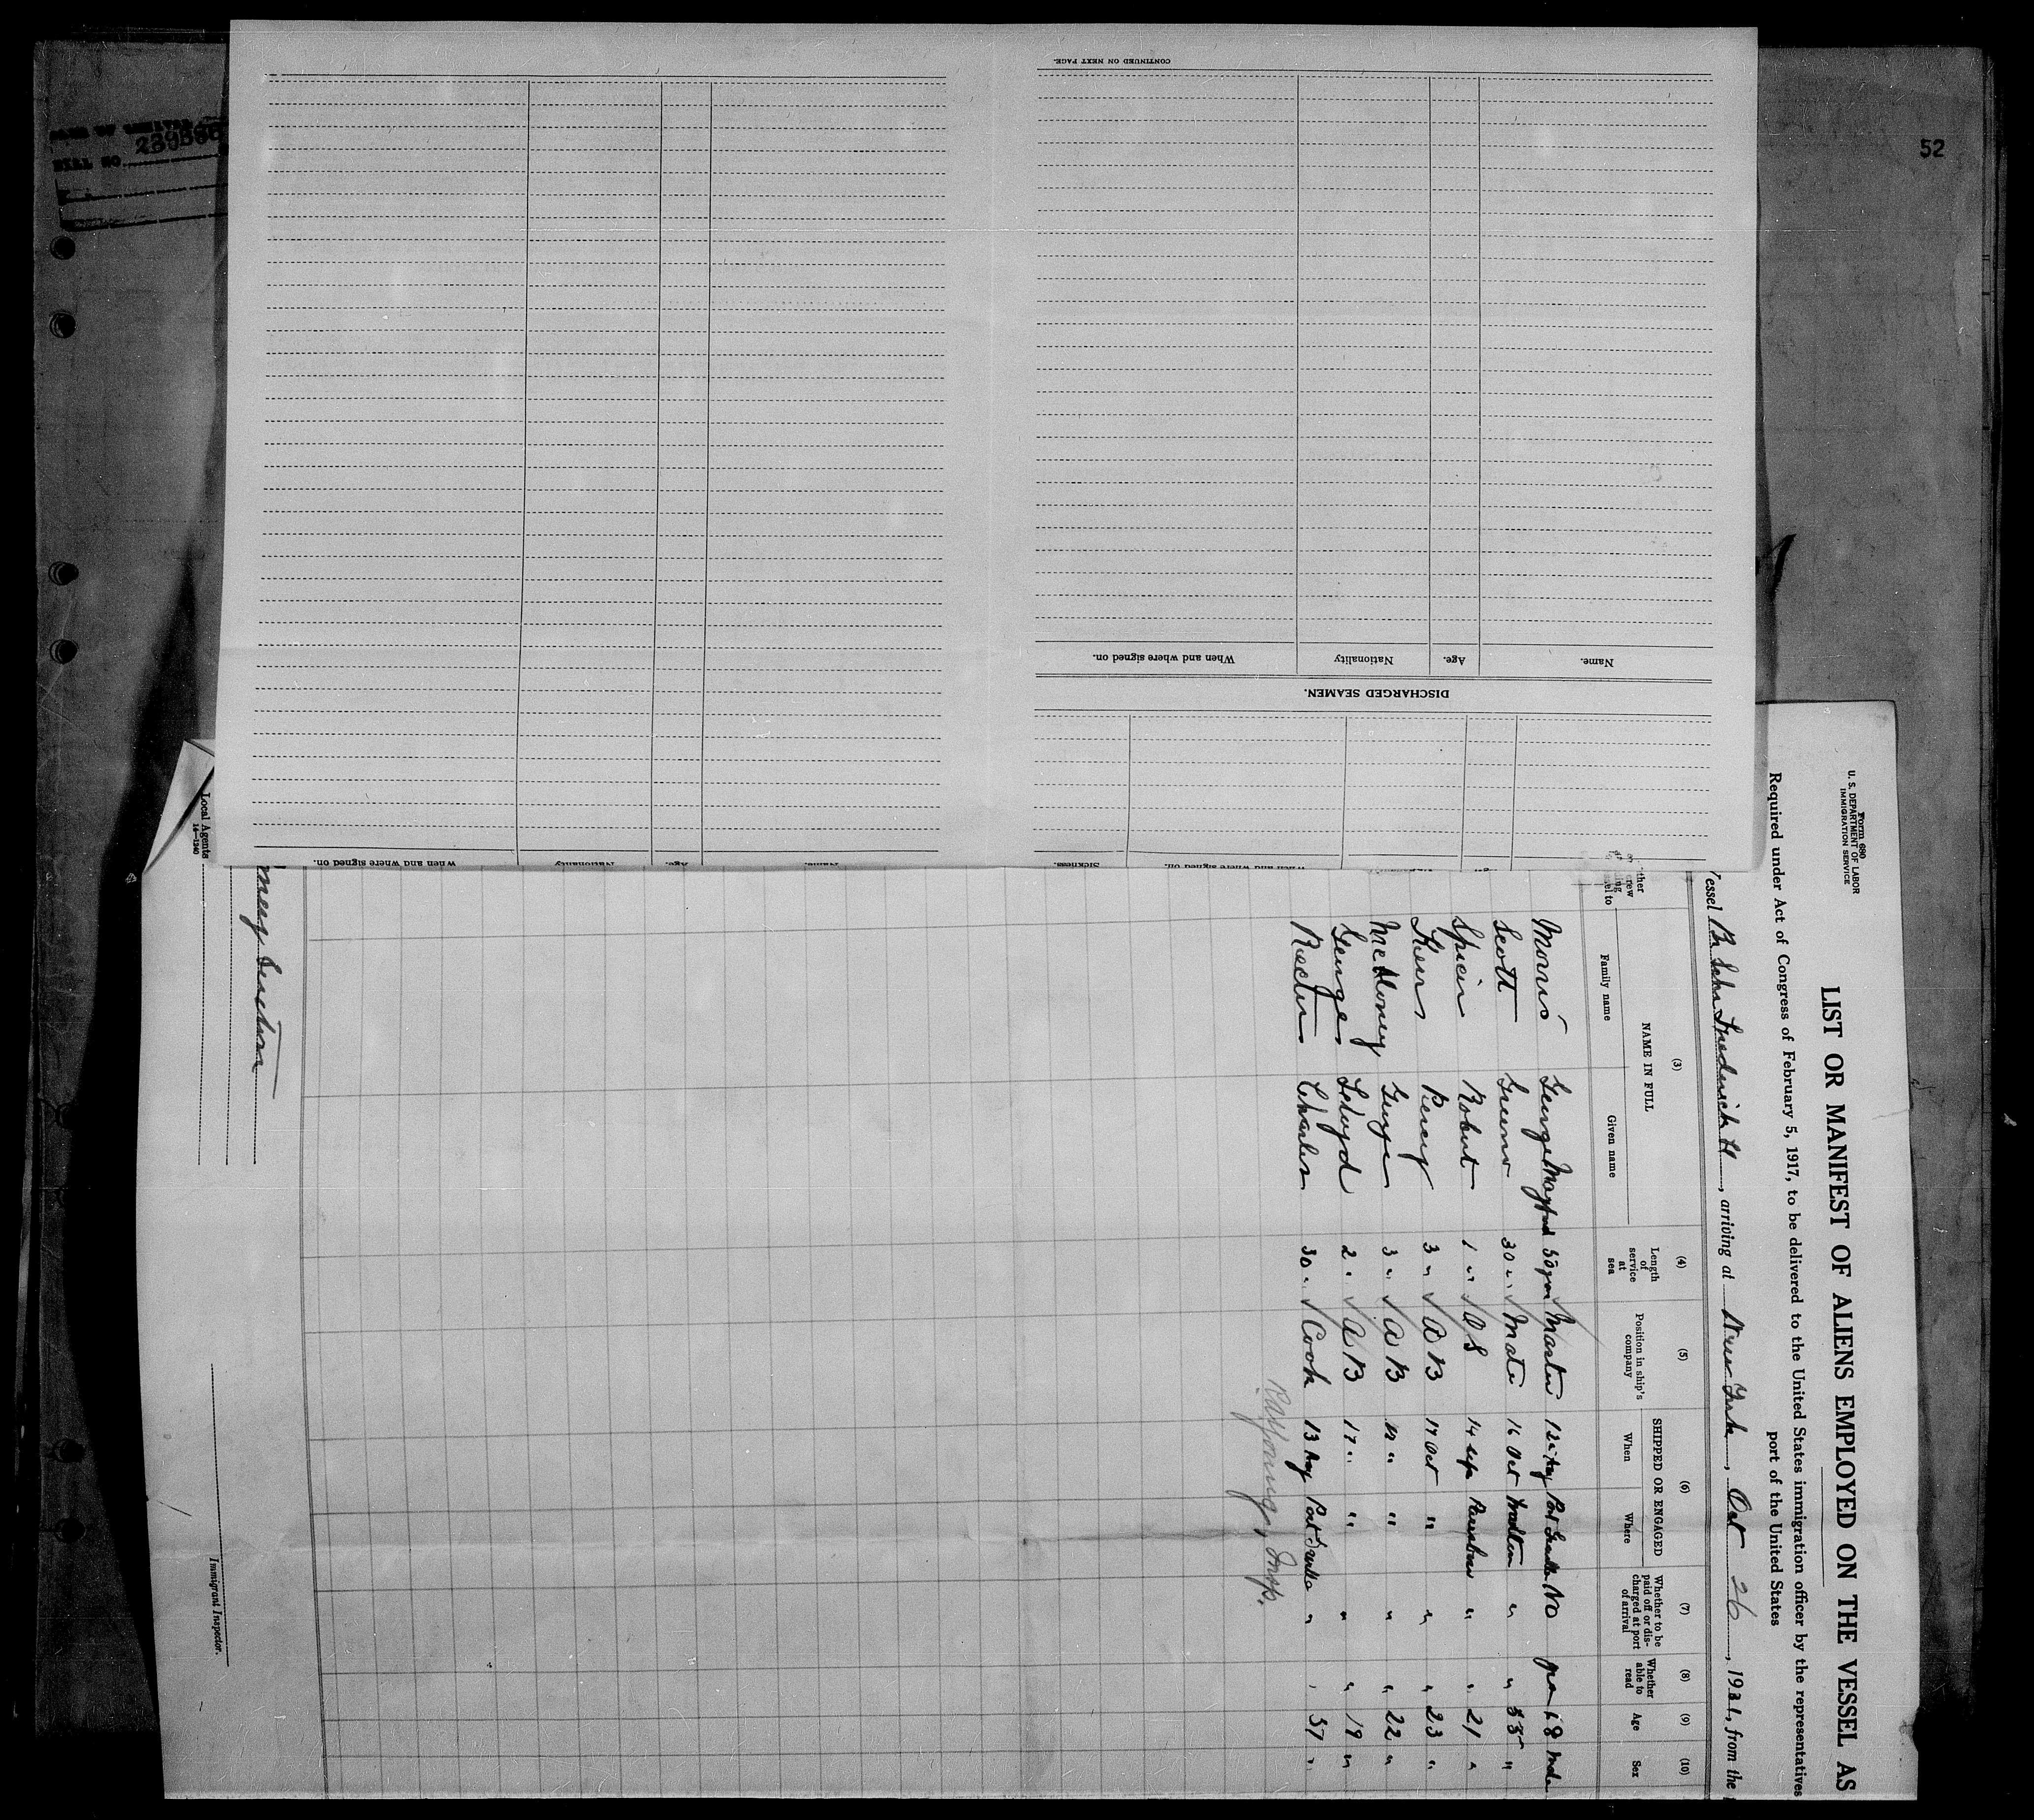 52
BILL NO.
CONTINUED ON NEXT PAGE.
Name. Age. Nationality When and where signed on.
DISCHARGED SEAMEN.
Form 680
U. S. DEPARTMENT OF LABOR
IMMIGRATION SERVICE
LIST OR MANIFEST OF ALIENS EMPLOYED ON THE VESSEL AS
Required under Act of Congress of February 5, 1917, to be delivered to the United States immigration officer by the representatives
port of the United States
Vessel Br Schr Frederick H, arriving at New York, Oct 26, 1931, from the
(3) (4) (5) (6) (7) (8) (9) (10)
NAME IN FULL
Family name Given name
Length of service at sea
Position in ship's company
SHIPPED OR ENGAGED
When Where
Whether to be paid off or discharged at port of arrival
Whether able to read
Age
Sex
Morris George 50 yrs Master 12 Aug No 68 male
Scott 30 " Mate 16 Oct " " "
Spicer Robert 1 " O S 14 Sep " " 21 "
Kerr Percy 3 " A B 17 Oct " " " 23 "
George 3 " A B " " " " 22 "
George Lloyd 2 " A B 17 " " " " 19 "
Rector Charles 30 " Cook 13 Aug " " 57 "
Insp.
Local Agents
14—1240
Immigrant Inspector.
Name. Age. Nationality When and where signed on.
When and where signed on. Sickness.